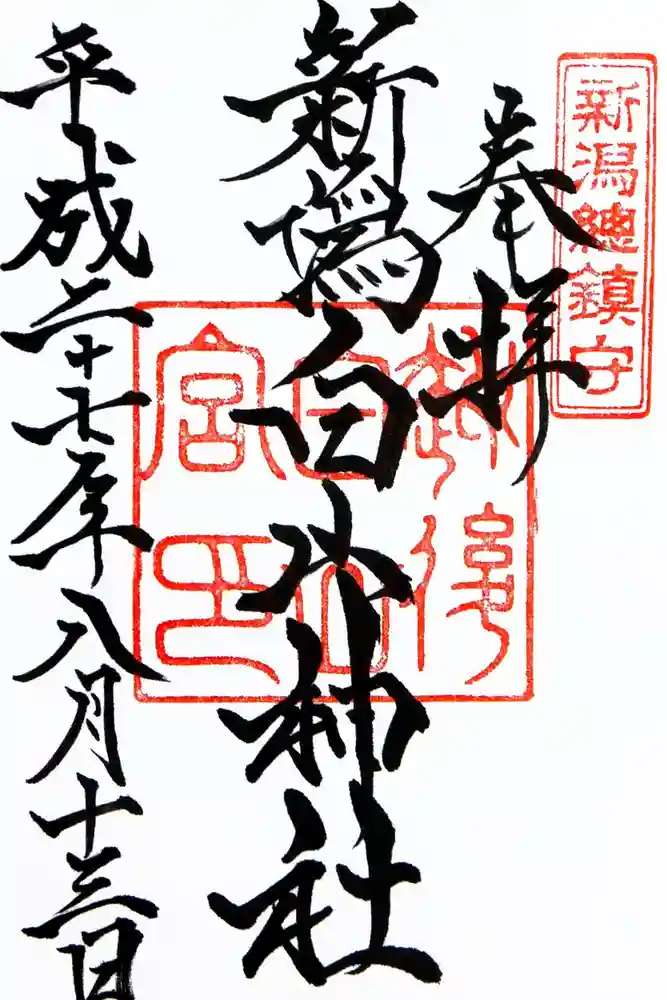 新潟總鎮守
奉拝
新潟白山神社
越後
白山
宮印
平成二十七年八月十三日